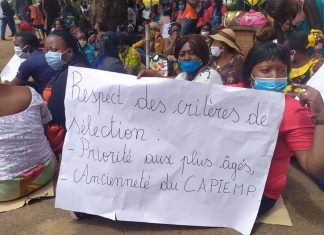 Respect des critères de
sélection :
- Priorité aux plus âgés,
- Ancienneté du CAPIEMP.